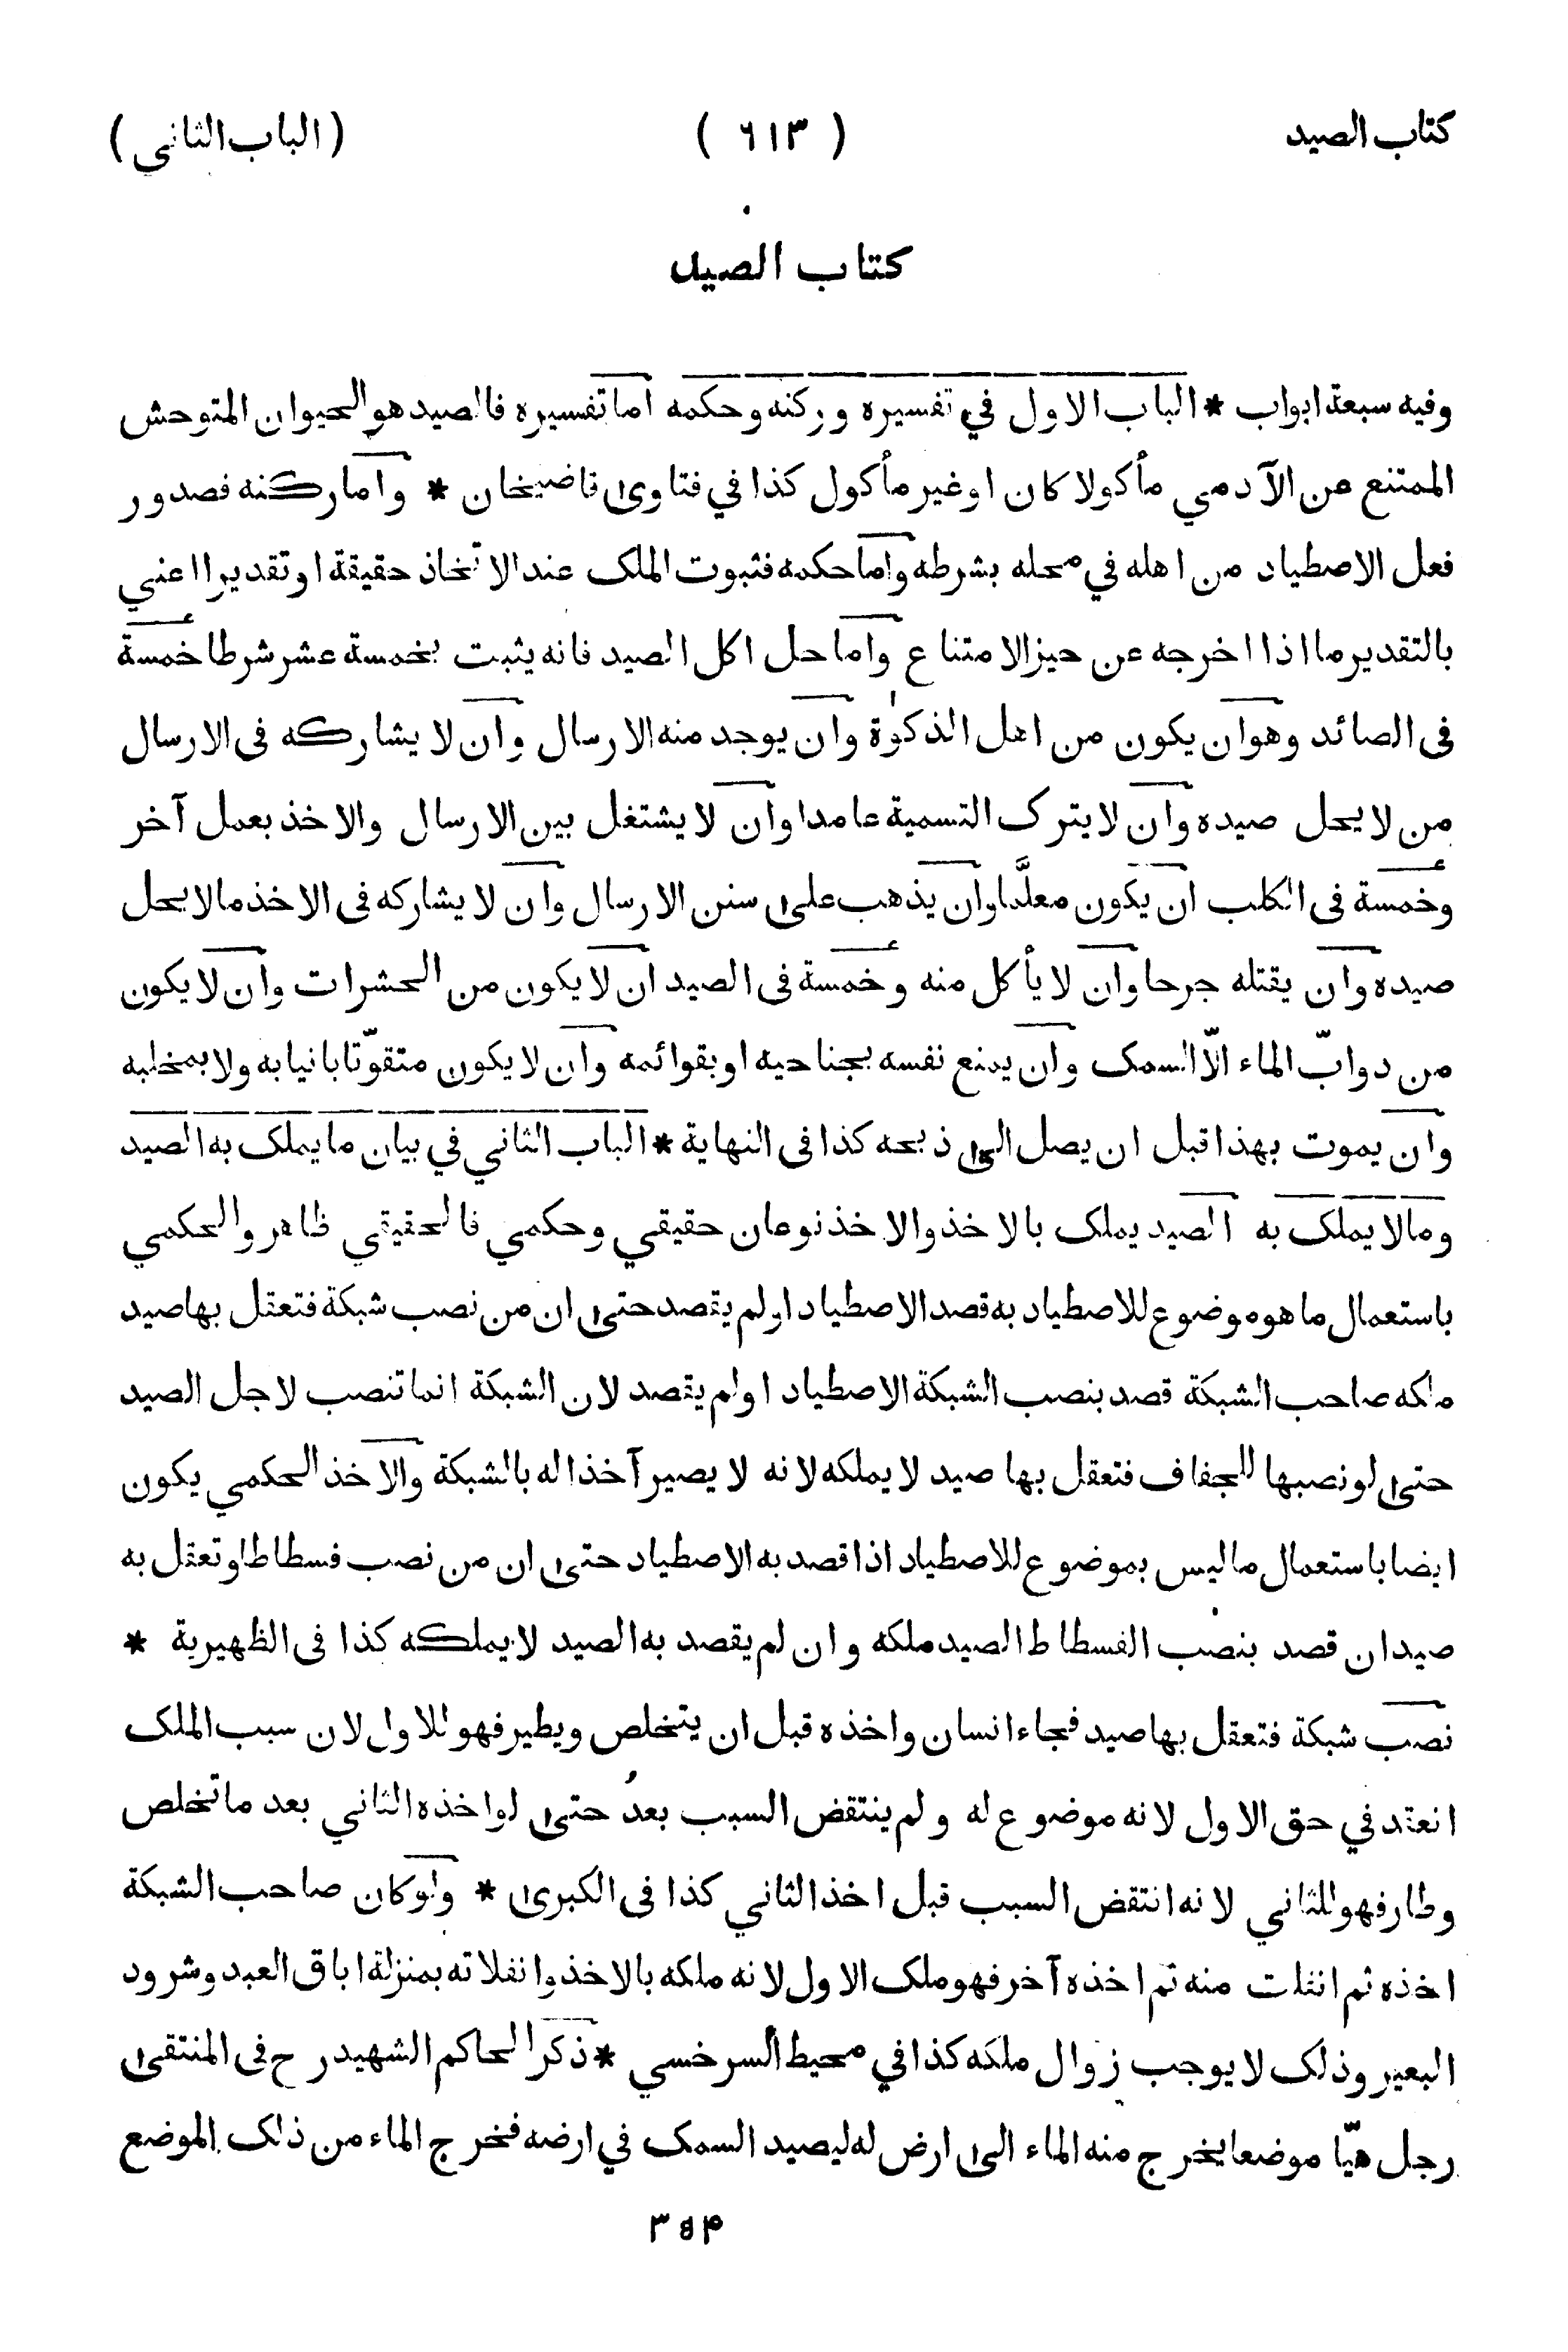 كتاب الصيد ( ٦١٣ ) ( الباب الثاني )
كتاب الصيد
وفيه سبعة ابواب * الباب الاول في تفسيره وركنه وحكمه اما تفسيره فالصيد هو الحيوان المتوحش
الممتنع عن الآدمي مأكولا كان او غير مأكول كذا في فتاوى قاضيخان * واما ركنه فصدور
فعل الاصطياد من اهله في محله بشرطه واما حكمه فثبوت الملك عند الاتخاذ حقيقة او تقديرا اعني
بالتقدير ما اذا اخرجه عن حيز الامتناع واما حل اكل الصيد فانه يثبت بخمسة عشر شرطا خمسة
فى الصائد وهو ان يكون من اهل الذكوة وان يوجد منه الارسال وان لا يشاركه فى الارسال
من لا يحل صيده وان لا يترك التسمية عامدا وان لا يشتغل بين الارسال والاخذ بعمل آخر
وخمسة فى الكلب ان يكون معلّما وان يذهب على سنن الارسال وان لا يشاركه فى الاخذ ما لا يحل
صيده وان يقتله جرحا وان لا يأكل منه وخمسة فى الصيد ان لا يكون من الحشرات وان لا يكون
من دوابّ الماء الّا السمك وان يمنع نفسه بجناحيه او بقوائمه وان لا يكون متقوّتا بانيابه ولا بمخلبه
وان يموت بهذا قبل ان يصل الى ذبحه كذا فى النهاية * الباب الثاني في بيان ما يملك به الصيد
وما لا يملك به الصيد يملك بالاخذ والاخذ نوعان حقيقي وحكمي فالحقيقي ظاهر والحكمي
باستعمال ما هو موضوع للاصطياد به قصد الاصطياد او لم يقصد حتى ان من نصب شبكة فتعقل بها صيد
ملكه صاحب الشبكة قصد بنصب الشبكة الاصطياد او لم يقصد لان الشبكة انما تنصب لاجل الصيد
حتى لو نصبها للجفاف فتعقل بها صيد لا يملكه لانه لا يصير آخذا له بالشبكة والاخذ الحكمي يكون
ايضا باستعمال ما ليس بموضوع للاصطياد اذا قصد به الاصطياد حتى ان من نصب فسطاطا وتعقل به
صيد ان قصد بنصب الفسطاط الصيد ملكه وان لم يقصد به الصيد لا يملكه كذا فى الظهيرية *
نصب شبكة فتعقل بها صيد فجاء انسان واخذه قبل ان يتخلص ويطير فهو للاول لان سبب الملك
انعقد في حق الاول لانه موضوع له ولم ينتقض السبب بعدُ حتى لو اخذه الثاني بعد ما تخلص
وطار فهو للثاني لانه انتقض السبب قبل اخذ الثاني كذا فى الكبرى * ولو كان صاحب الشبكة
اخذه ثم انفلت منه ثم اخذه آخر فهو ملك الاول لانه ملكه بالاخذ وانفلاته بمنزلة اباق العبد وشرود
البعير وذلك لا يوجب زوال ملكه كذا في محيط السرخسي * ذكر الحاكم الشهيد رح فى المنتقى
رجل هيّا موضعا يخرج منه الماء الى ارض له ليصيد السمك في ارضه فخرج الماء من ذلك الموضع
٣٥۴